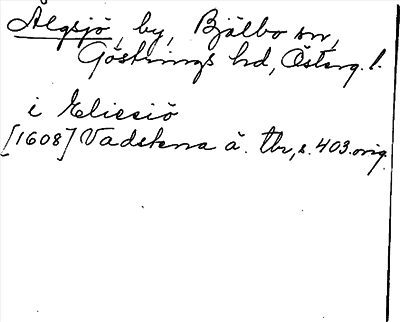 Älgsjö, by, Bjälbo sn,
Göstrings hd, Österg. l.
i Eliesiö
[1608] Vadstena ä. tbr, s. 403. orig.